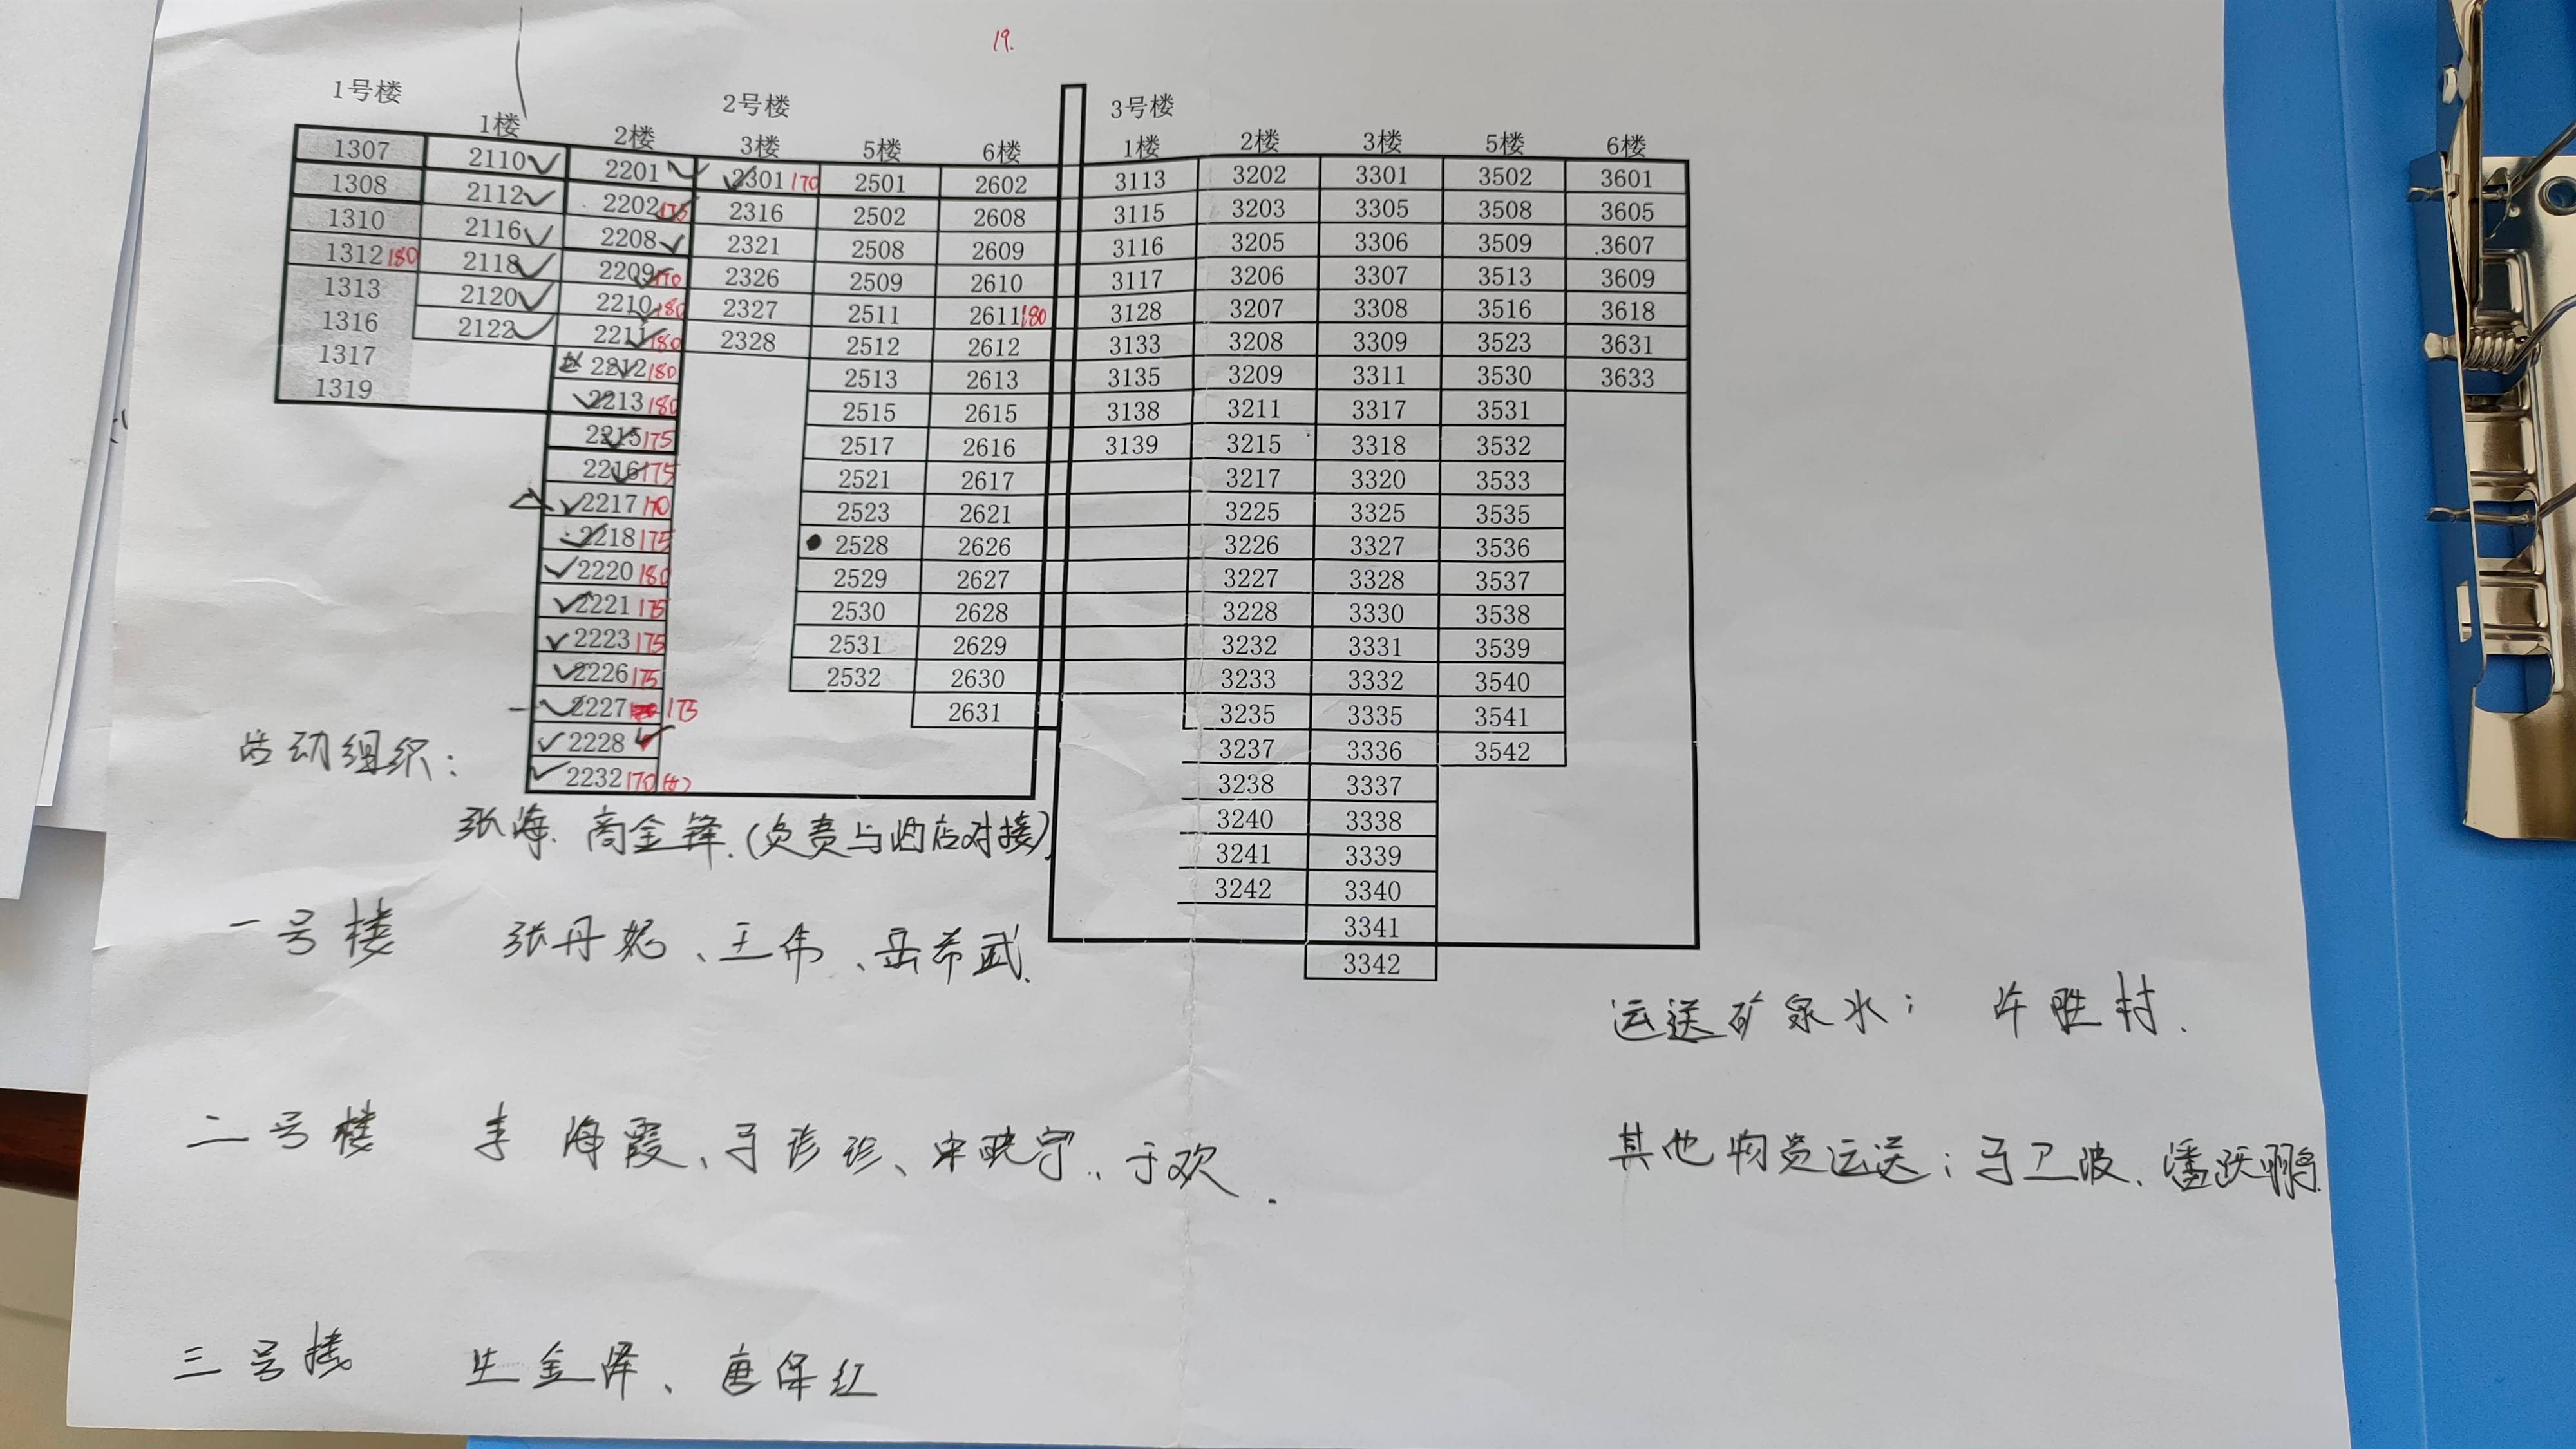 19.
1号楼 2号楼 3号楼
1楼 2楼 3楼 5楼 6楼 1楼 2楼 3楼 5楼 6楼
1307 2110✓ 2201✓ ✓2301 170 2501 2602 3113 3202 3301 3502 3601
1308 2112✓ 2202 175 2316 2502 2608 3115 3203 3305 3508 3605
1310 2116✓ 2208✓ 2321 2508 2609 3116 3205 3306 3509 .3607
1312 180 2118✓ 2209✓ 170 2326 2509 2610 3117 3206 3307 3513 3609
1313 2120✓ 2210✓ 180 2327 2511 2611 180 3128 3207 3308 3516 3618
1316 2122✓ 2211✓ 180 2328 2512 2612 3133 3208 3309 3523 3631
1317 2212✓ 180 2513 2613 3135 3209 3311 3530 3633
1319 ✓2213 180 2515 2615 3138 3211 3317 3531
2215✓ 175 2517 2616 3139 3215 3318 3532
2216✓ 175 2521 2617 3217 3320 3533
△ ✓2217 170 2523 2621 3225 3325 3535
✓2218 175 ● 2528 2626 3226 3327 3536
✓2220 180 2529 2627 3227 3328 3537
✓2221 175 2530 2628 3228 3330 3538
✓2223 175 2531 2629 3232 3331 3539
✓2226 175 2532 2630 3233 3332 3540
✓2227 175 2631 3235 3335 3541
✓2228 ✓ 3237 3336 3542
✓2232 170 3238 3337
3240 3338
3241 3339
3242 3340
3341
3342
活动组织：
张海、商金锋.(负责与酒店对接)
一号楼 张丹妮、王伟、岳希武.
二号楼 李海霞、马珍珍、宋晓宁、于欢.
三号楼 生金泽、唐保红
运送矿泉水： 许胜村.
其他物资运送：马卫波、潘跃鹏